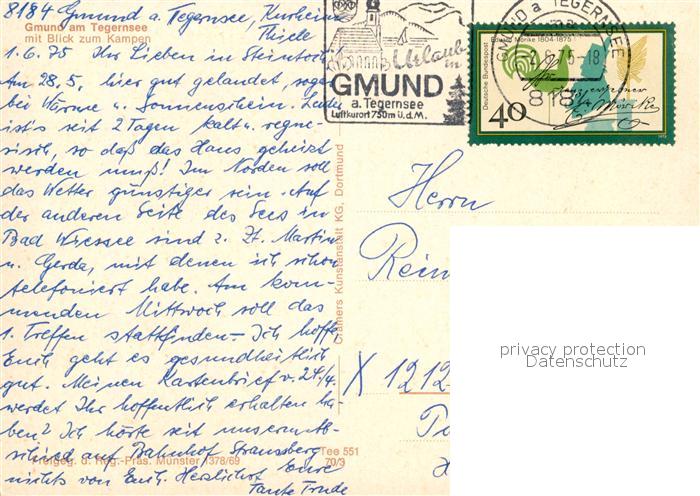 8184 Gmund a. Tegernsee, Kurheim
Thiele
Gmund am Tegernsee
mit Blick zum Kampen
1.6.75 Ihr Lieben in Steintoch!
Am 28.5. hier gut gelandet, sogar
bei Wärme u. Sonnenschein. Leider
ist's seit 2 Tagen kalt u. regne-
risch, so daß das Haus geheizt
werden muß! Im Norden soll
das Wetter günstiger sein. Auf
der anderen Seite des Sees in
Bad Wiessee sind z. Zt. Martin
u. Gerda, mit denen ich schon
telefoniert habe. Am kom-
menden Mittwoch soll das
1. Treffen stattfinden. – Ich hoffe,
Euch geht es gesundheitlich
gut. Meinen Kartenbrief v. 24./4.
werdet Ihr hoffentlich erhalten ha-
ben? Ich hörte seit
auf Bahnhof Straussberg
nichts von Euch. Herzlichst Eure
Tante Trude
Freigeg. d. Reg.-Präs. Münster 1378/69
Tee 551
70/3
Cramers Kunstanstalt KG, Dortmund
Urlaub
in
GMUND
a. Tegernsee
Luftkurort 750m ü.d.M.
GMUND a TEGERNSEE
Deutsche Bundespost
Eduard Mörike 1804-1875
40
Herrn
Rein
X 1212
privacy protection
Datenschutz